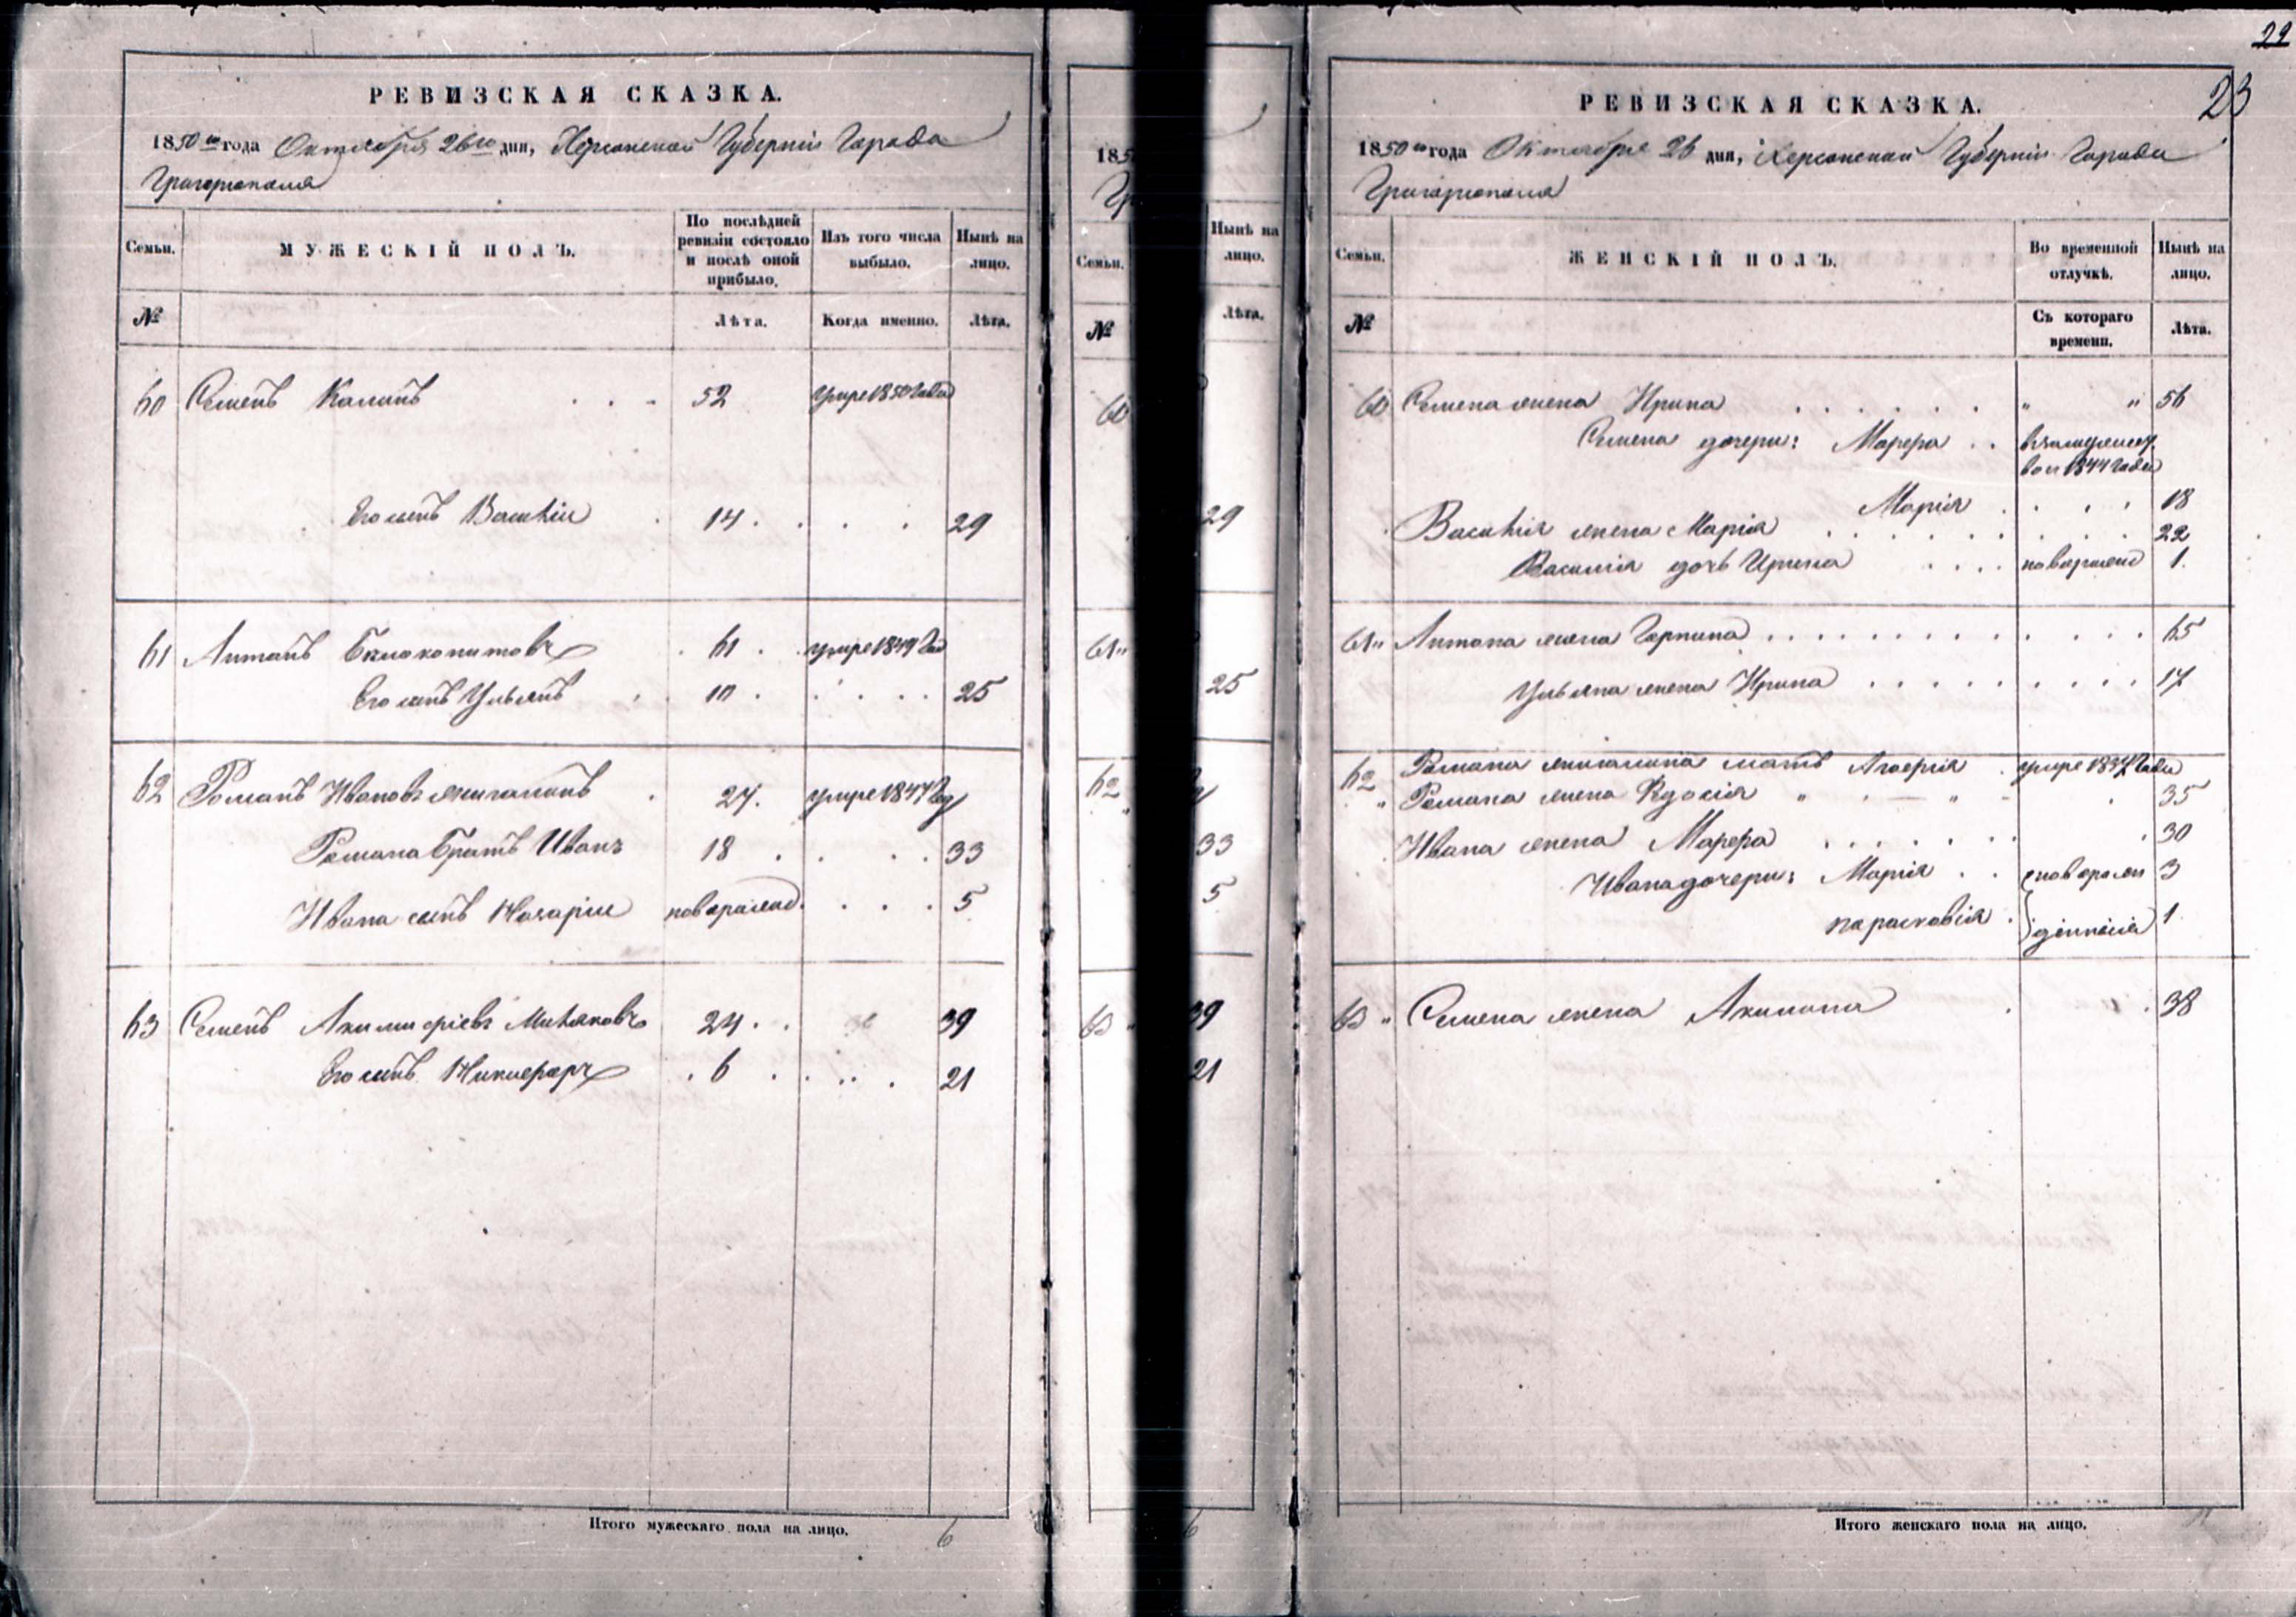 РЕВИЗСКАЯ СКАЗКА.
1850 го года Октября 26го дня, Херсонской Губерніи Города
Григоріополя
Семьи. МУЖЕСКІЙ ПОЛЪ. По послѣдней ревизіи состояло и послѣ оной прибыло. Изъ того числа выбыло. Нынѣ на лицо.
№ Лѣта. Когда именно. Лѣта.
60 Семенъ 52 умре 1850 Года
Его сынъ Василій 14 29
61 Антонъ Белокопитовъ 61 умре 1849 Год
Его сынъ Ульянъ 10 25
62 Романъ Ивановъ 24 умре 1847 Году
Романа Братъ Иванъ 18 33
Ивана сынъ Назарій новорожд. 5
63 Семенъ 24 39
Его сынъ Никифоръ 6 21
Итого мужескаго пола на лицо. 6
185
Гр
Семьи. Нынѣ на лицо.
№ Лѣта.
60
29
61
25
62
33
5
63 39
21
6
22
23
РЕВИЗСКАЯ СКАЗКА.
1850 го года Октября 26 дня, Херсонской Губерніи Города
Григоріополя
Семьи. ЖЕНСКІЙ ПОЛЪ. Во временной отлучкѣ. Нынѣ на лицо.
№ Съ котораго времени. Лѣта.
60 Семена жена Ирина " " 56
Семена дочери: Марфа
1844 Года
Марія 18
Василія жена Марія 22
Василія дочь Ирина новорожд 1.
61 Антона жена Горпина 65
Ульяна жена Ирина 17
62 Романа мать умре 1837 Года
" Романа жена " " 35
Ивана жена Марфа 30
Ивана дочери: Марія новорожден 3
Парасковія 1
63 " Семена жена Акилина 38
Итого женскаго пола на лицо.